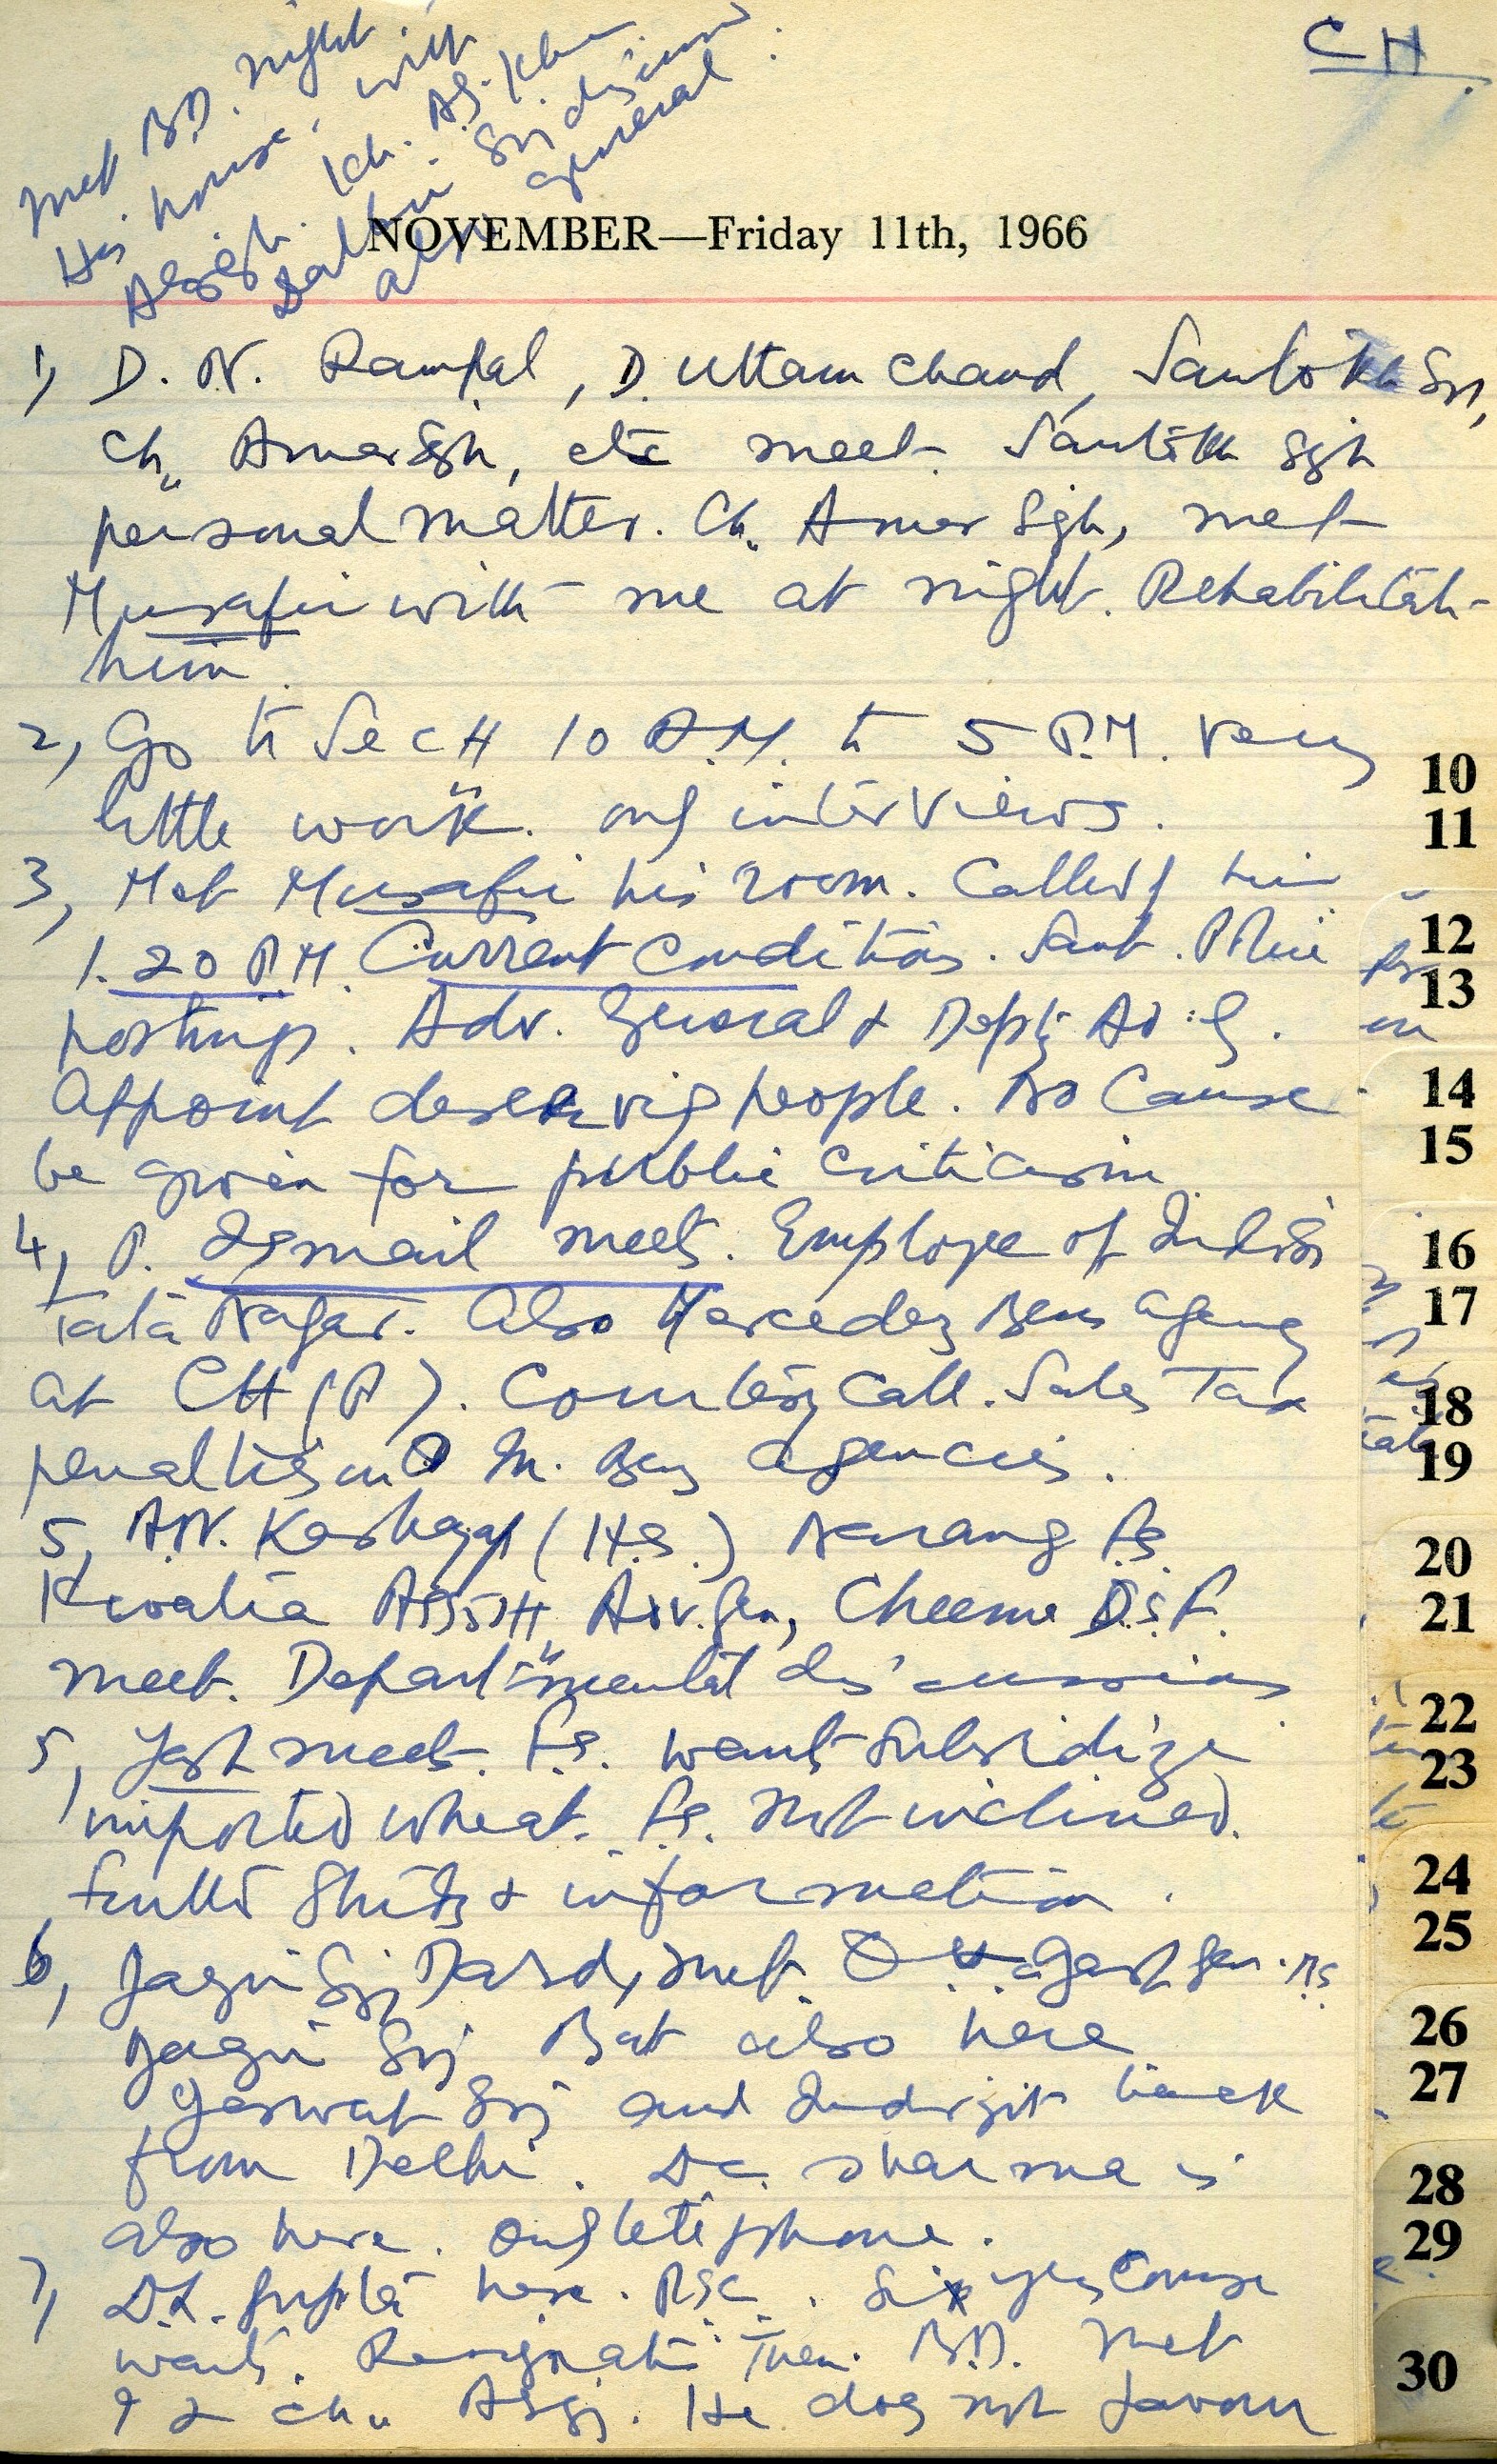 CH.
Met B.D. night.
His house, with
Ch. A.S. Khan
Sri
also general
NOVEMBER—Friday 11th, 1966
1, D. N. Rampal, D. Uttam Chand, Santokh Sri,
Ch. Amar Sgh, etc meet. Santokh Sgh
personal matter. Ch. Amar Sgh, met
Musafir with me at night. Rehabilitati-
him.
2, Go to Sectt 10 A.M. to 5 P.M. Very
little work. only interviews.
3, Met Musafir his room. Called by him
1.20 P.M. Current conditions. Sant.
postings. Adv. General & Depty Ad. G.
Appoint deserving people. No Cause
be given for public criticism
4, P. Ismail meets. Employee of
Tata Nagar. Also Mercedez Benz agency
at CH (P). Courtesy Call. Sales Tax
penalties on M. Benz agencies.
5, A.N. Kashyap (H.S.) Narang F.S.
Kwatra Assstt Adv. Gen, Cheema D.S.P.
meet. Departmental discussions
5, Yash meets. F.S. want subsidize
imported wheat. F.S. not inclined.
& information.
6, Jagir Sri Dard, met.
Jagir Sri Bat also here
Jaswat Sri and Indrjit back
from Delhi. D.C. Sharma is
also here. Only telephone.
7, D.L. Gupta here. P.S.C. Six yrs Course
wants. Resignati then. B.D. met
I & Ch. He does not favour
10
11
12
13
14
15
16
17
18
19
20
21
22
23
24
25
26
27
28
29
30